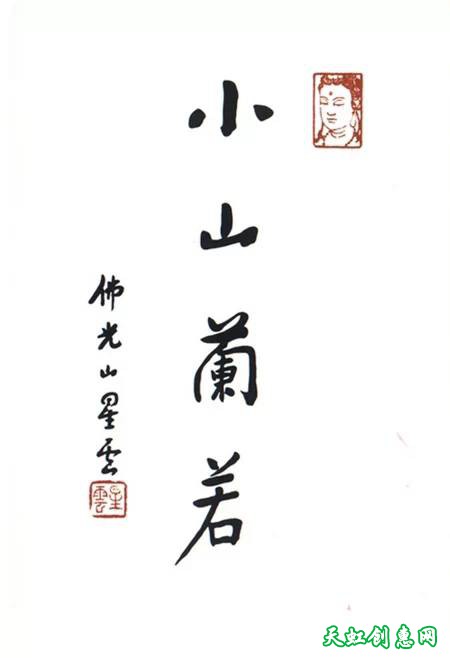 小山蘭若
佛光山星雲
星雲
天虹创意网